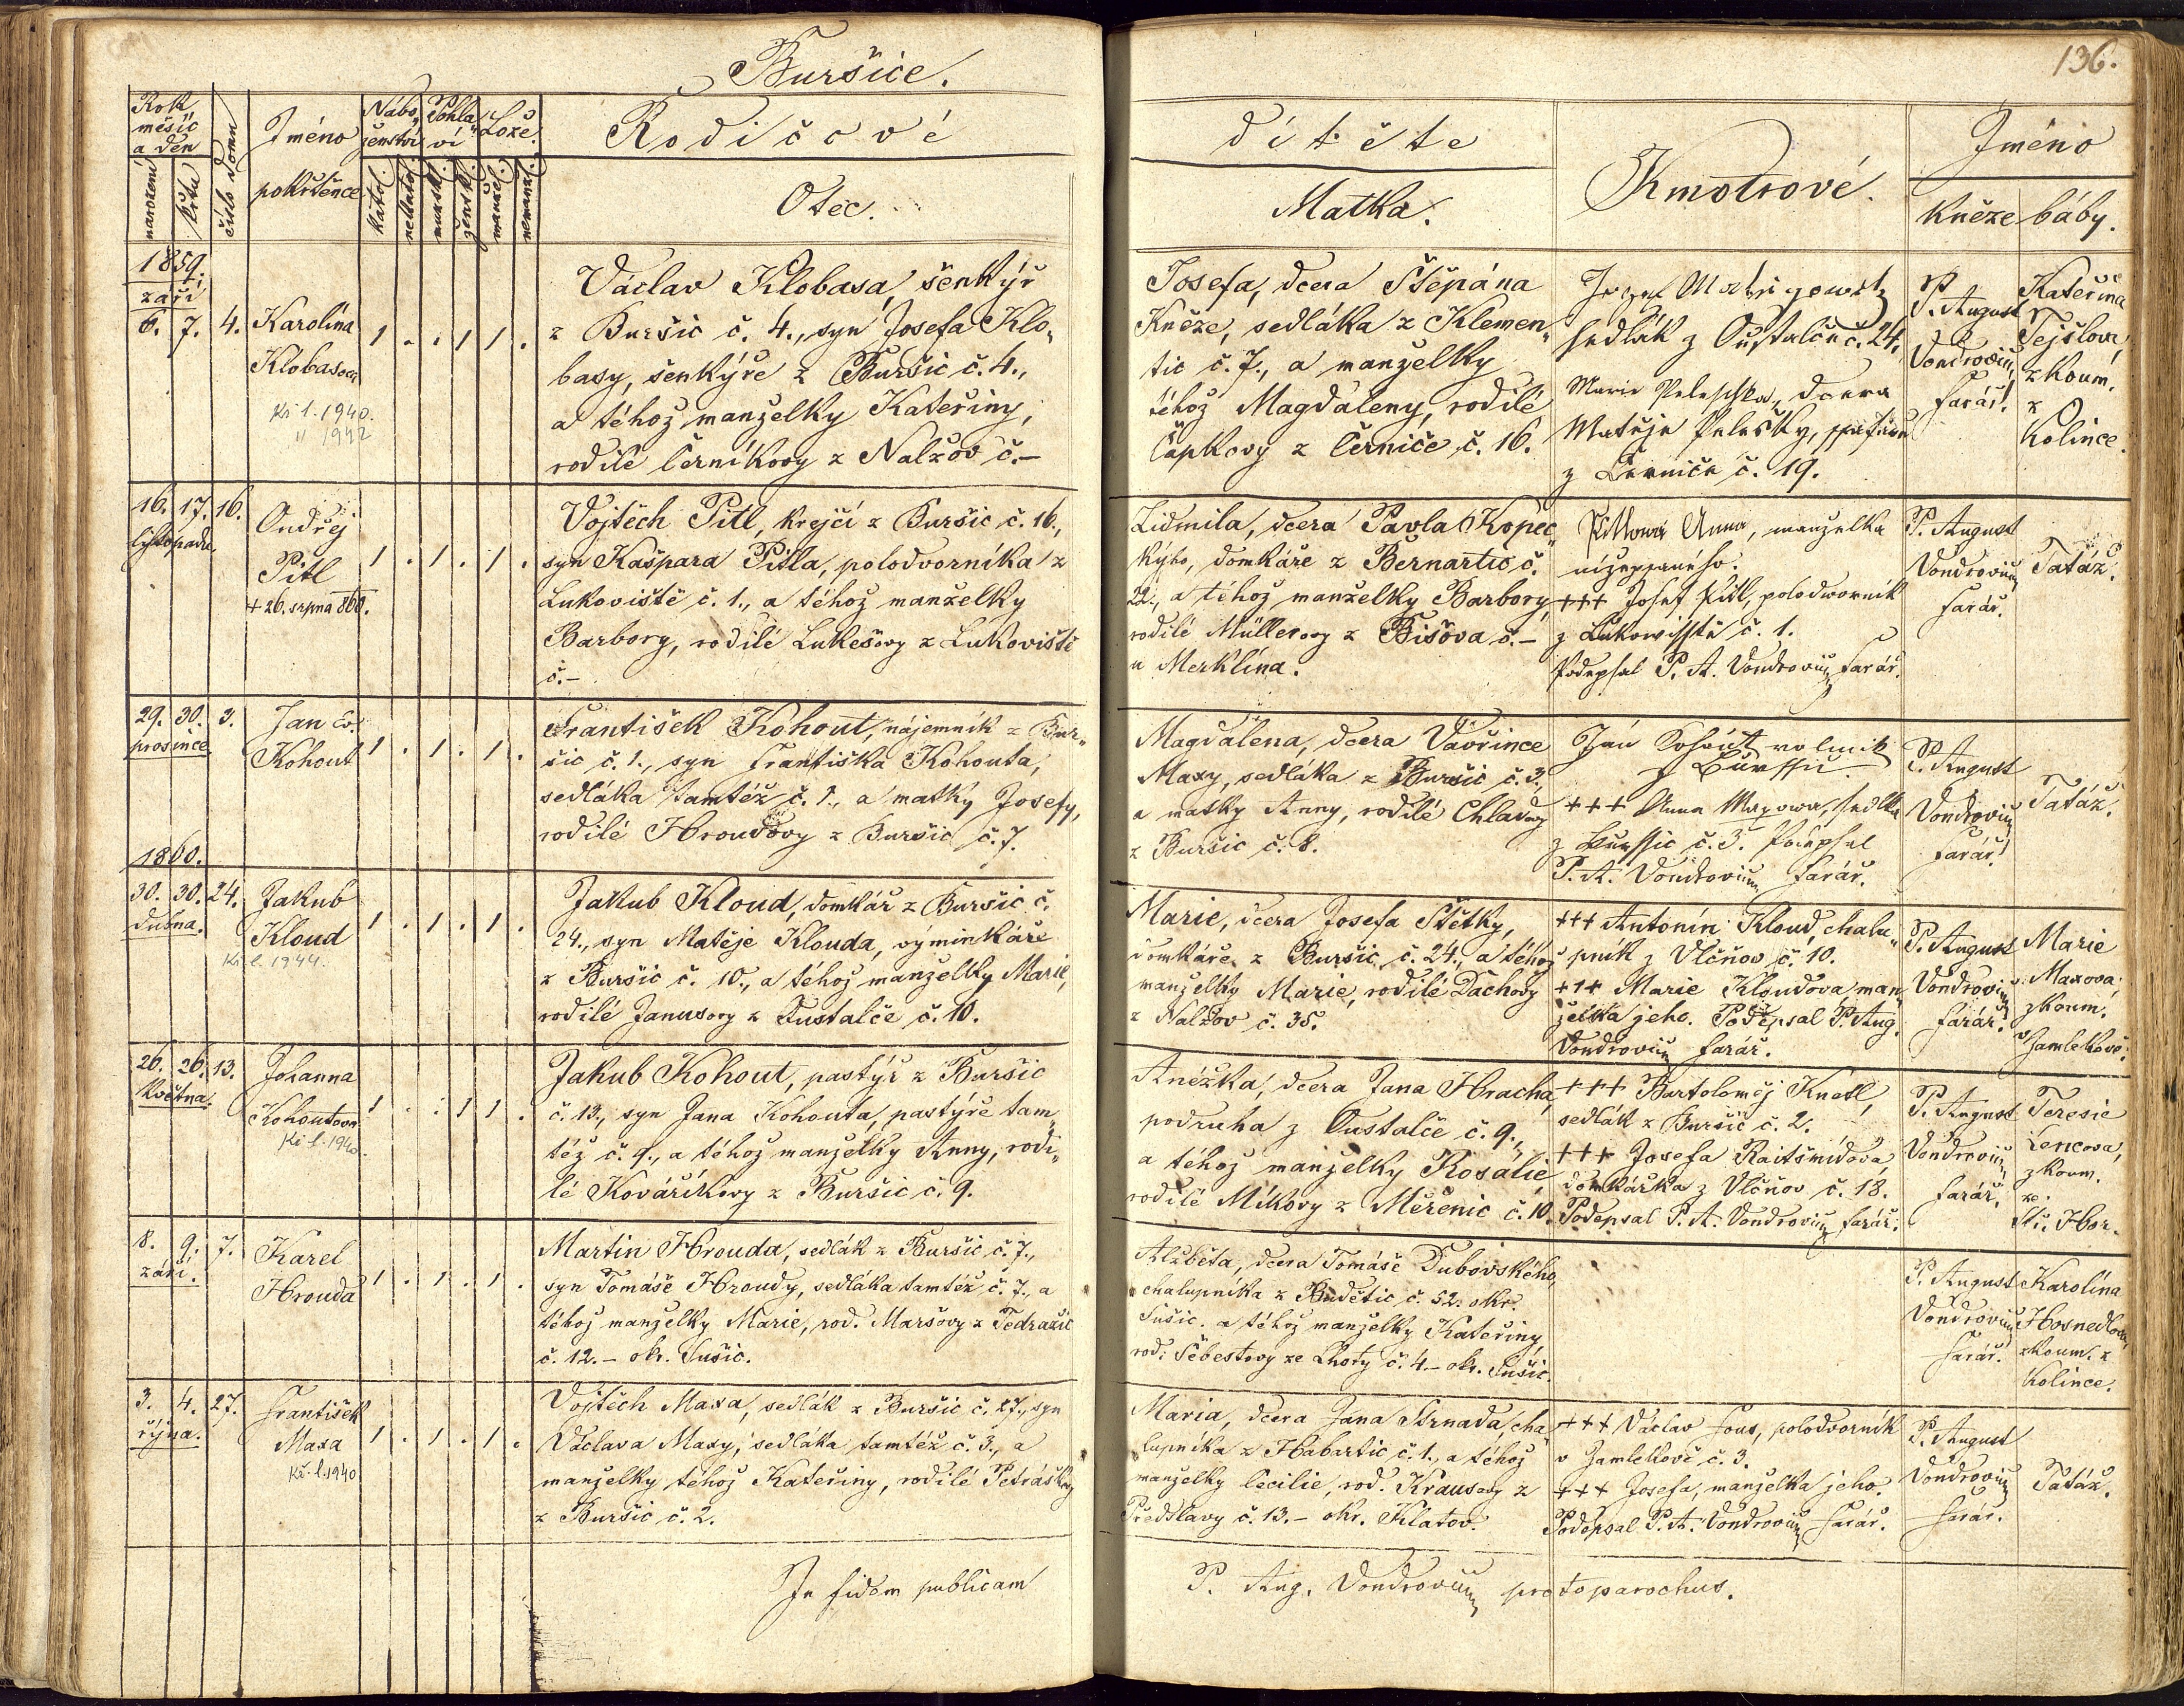 Buršice.
136.
Rok měsíc a den
narození
křtu
číslo domu
Jméno pokřtěnce
Náboženství
katol.
nekatol.
Pohlaví
mužsk.
žensk.
Lože.
manžel.
nemanž.
Rodičové
Otec.
dítěte
Matka.
Kmotrové.
Jméno
kněze
báby.
1859.
září
6. 7. 4.
Karolína
Klobasova
Kř. l. 1940.
" 1942
1 . . 1 1 .
Václav Klobasa, šenkýř
z Buršic č. 4., syn Josefa Klo„
basy, šenkýře z Buršic č. 4.,
a téhož manželky Kateřiny,
rodilé Černíkovy z Nalžov č.–
Josefa, dcera Štěpána
Kněze, sedláka z Klemen„
tic č. 7., a manželky
téhož Magdaleny, rodilé
Čapkovy z Černiče č. 16.
sedlák z Oustalče č. 24.
Marie Peleschka, dcera
Matěje Pelešky,
z Černiče č. 19.
P. August
Vondrovicz
farář.
Kateřina
Tejslova,
zkoum.
z
Kolince.
16. 17. 16.
listopadu.
Ondřej
Pitl
+ 26. srpna 860.
1 . 1 . 1 .
Vojtěch Pitl, krejčí z Buršic č. 16.,
syn Kašpara Pitla, polodvorníka z
Lukoviště č. 1., a téhož manželky
Barbory, rodilé Lukešovy z Lukoviště
č.–
Lidmila, dcera Pavla Kopec„
kýho, domkáře z Bernartic č.
22., a téhož manželky Barbory,
rodilé Müllerovy z Bišova č.–
u Merklína.
Pitlowa Anna, manželka
nížepsaného.
+++ Josef Pitl, polodwornik
z Lukowisstě č. 1.
Podepsal P. A. Vondrovicz farář.
P. August
Vondrovicz
farář.
Tatáž.
29. 30. 3.
prosince.
Jan Ev.
Kohout
1 . 1 . 1 .
František Kohout, nájemník z Bur„
šic č. 1., syn Františka Kohouta,
sedláka tamtéž č. 1., a matky Josefy,
rodilé Hroudovy z Buršic č. 7.
Magdalena, dcera Vavřince
Maxy, sedláka z Buršic č. 3.,
a matky Anny, rodilé Chladovy
z Buršic č. 8.
Ján Kohout rolník
z Burssic.
+++ Anna Maxowa, sedlka
z Burssic č. 3. Podepsal
P. A. Vondrovicz farář.
P. August
Vondrovicz
farář.
Tatáž.
1860.
30. 30. 24.
dubna.
Jakub
Kloud
Kř. l. 1944.
1 . 1 . 1 .
Jakub Kloud, domkář z Buršic č.
24., syn Matěje Klouda, výminkáře
z Buršic č. 10., a téhož manželky Marie,
rodilé Janusovy z Oustalče č. 10.
Marie, dcera Josefa Štětky,
domkáře z Buršic č. 24., a téhož
manželky Marie, rodilé Dachovy
z Nalžov č. 35.
+++ Antonín Kloud, chalu„
pník z Vlčňov č. 10.
+++ Marie Kloudova man„
želka jeho. Podepsal P. Aug.
Vondrovicz farář.
P. August
Vondrovicz
farář.
Marie
Maxova,
zkoum.
v
Jamlekově.
26. 26. 13.
května.
Johanna
Kohoutova
Kř. l. 1940.
1 . . 1 1 .
Jakub Kohout, pastýř z Buršic
č. 13., syn Jana Kohouta, pastýře tam„
též č. 9., a téhož manželky Anny, rodi„
lé Kováříkovy z Buršic č. 9.
Anežka, dcera Jana Hracha,
podruha z Oustalče č. 9.,
a téhož manželky Rosalie
rodilé Míkovy z Měřenic č. 10.
+++ Bartoloměj Knetl,
sedlák z Buršic č. 2.
+++ Josefa Raitšmídova,
domkářka z Vlčňov č. 18.
Podepsal P. A. Vondrovicz farář.
P. August
Vondrovicz
farář.
Teresie
Lencova,
zkoum.
ze
Stř. Hor.
8. 9. 7.
září.
Karel
Hrouda
1 . 1 . 1 .
Martin Hrouda, sedlák z Buršic č. 7.,
syn Tomáše Hroudy, sedláka tamtéž č. 7., a
téhož manželky Marie, rod. Maršovy z Tedražic
č. 12.– okr. Sušic.
Alžběta, dcera Tomáše Dubovského,
chalupníka z Budětic č. 52. okr.
Sušic. a téhož manželky Kateřiny,
rod. Šebestovy ze Lhoty č. 4.– okr. Sušic.
P. August
Vondrovicz
farář.
Karolína
Hosnedlova,
zkoum. z
Kolince.
3. 4. 27.
října.
František
Maxa
Kř. l. 1940
1 . 1 . 1 .
Vojtěch Maxa, sedlák z Buršic č. 27., syn
Václava Maxy, sedláka tamtéž č. 3., a
manželky téhož Kateřiny, rodilé Petráškovy
z Buršic č. 2.
Maria, dcera Jana Strnada, cha„
lupníka z Habartic č. 1., a téhož
manželky Cecilie, rod. Krausovy z
Předslavy č. 13.– okr. Klatov.
+++ Václav Fous, polodvorník
v Jamlekově č. 3.
+++ Josefa, manželka jeho.
Podepsal P. A. Vondrovicz farář.
P. August
Vondrovicz
farář.
Tatáž.
In fidem publicam
P. Aug. Vondrovicz protoparochus.